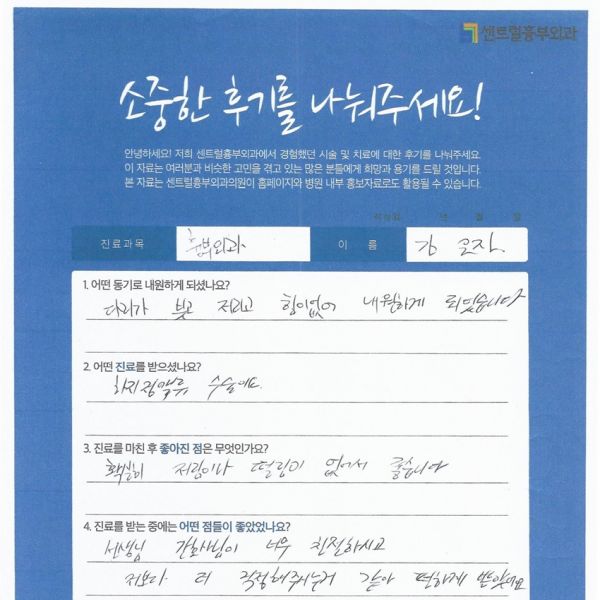 센트럴흉부외과
소중한 후기를 나눠주세요!
안녕하세요! 저희 센트럴흉부외과에서 경험했던 시술 및 치료에 대한 후기를 나눠주세요.
이 자료는 여러분과 비슷한 고민을 겪고 있는 많은 분들에게 희망과 용기를 드릴 것입니다.
본 자료는 센트럴흉부외과의원이 홈페이지와 병원 내부 홍보자료로도 활용될 수 있습니다.
작성일 년 월 일
진료과목 흉부외과 이 름 김
1. 어떤 동기로 내원하게 되셨나요?
다리가 붓고 저리고 힘이없어 내원하게 되었습니다
2. 어떤 진료를 받으셨나요?
하지정맥류 수술이요
3. 진료를 마친 후 좋아진 점은 무엇인가요?
확실히 저림이나 떨림이 없어서 좋습니다
4. 진료를 받는 중에는 어떤 점들이 좋았었나요?
선생님 간호사님이 너무 친절하시고
저보다 더 걱정해주시는거 같아 편하게 받았어요